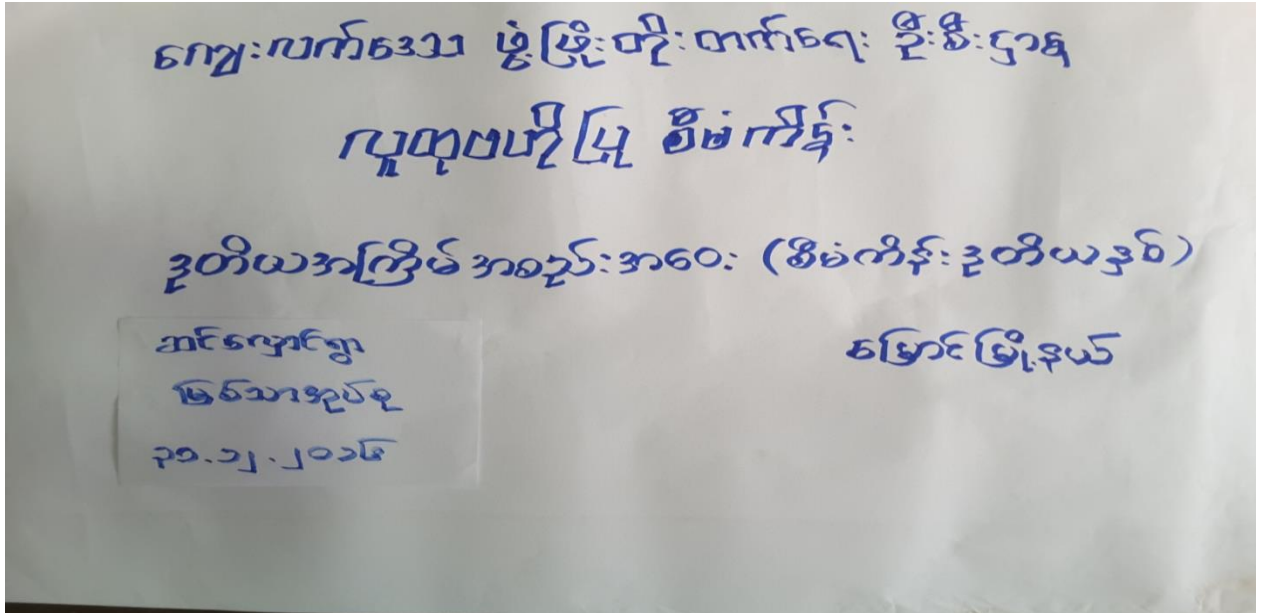 ကျေးလက်ဒေသ ဖွံ့ဖြိုးတိုးတက်ရေး ဦးစီးဌာန
လူထုဗဟိုပြု စီမံကိန်း
ဒုတိယအကြိမ်အစည်းအဝေး (စီမံကိန်းဒုတိယနှစ်)
ဆင်လှောင်ရွာ
မြောင်မြို့နယ်
မြစ်သားအုပ်စု
၃၁.၁၂.၂၀၁၆